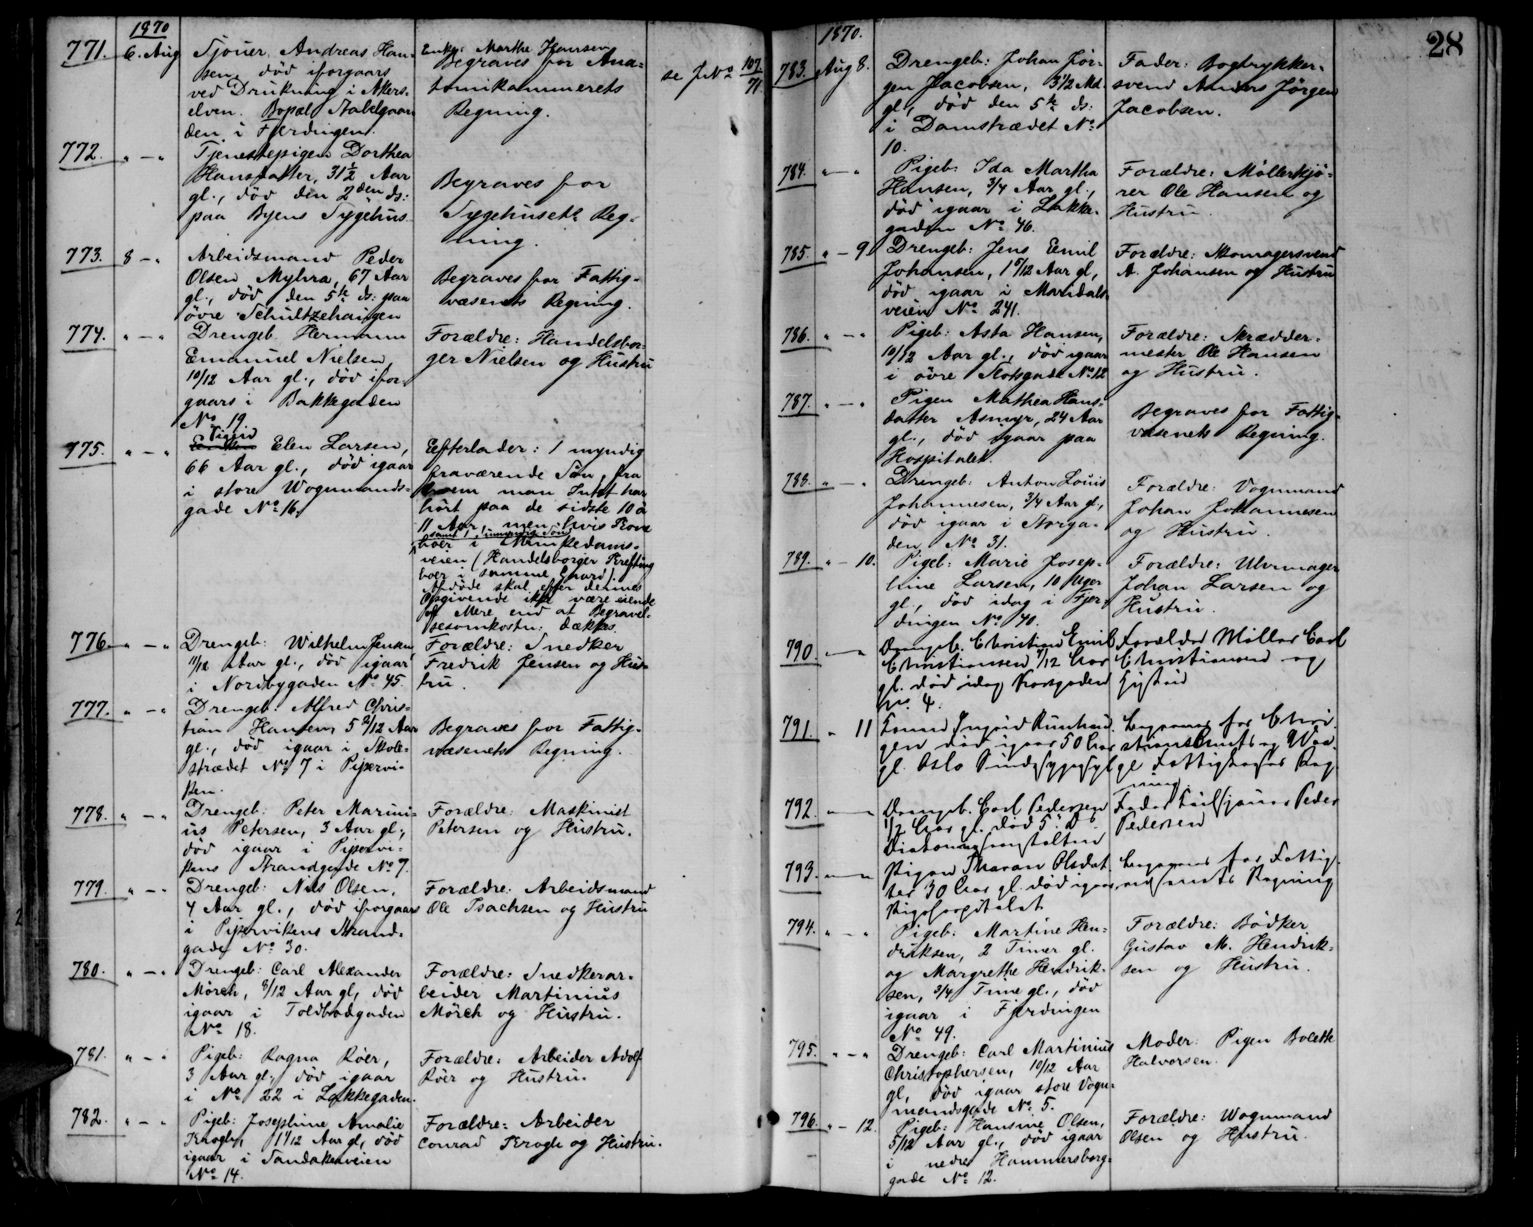 1870
771. 6. Aug Sjouer Andreas Han-
sen, död iforgaars
ved Drukning i Akers-
elven. Bopæl Stabelgaar-
den i Fjerdingen.
Enke: Marthe Hansen
Begraves for Ana-
tomikammerets
Regning.
se J No 107/71
772. " - " Tjenestepigen Dorthea
Hansdatter, 31½ Aar
gl., död den 2den ds:
paa Byens Sygehus
Begraves for
Sygehusets Reg-
ning.
773. 8 - " Arbeidsmand Peder
Olsen Myhra, 67 Aar
gl., död den 5te ds: paa
övre Schultzehaugen
Begraves for Fattig-
væsenets Regning.
774. " - " Drengeb. Hermann
Emanuel Nielsen,
10/12 Aar gl., död ifor-
gaars i Bakkegaden
No 19.
Forældre: Handelsbor-
ger Nielsen og Hustru
775. " - " Pigen Elen Larsen,
66 Aar gl., död igaar
i store Wognmands-
gade No 16.
Efterlader: 1 myndig
fraværende Sön, fra
hvem man Intet har
hört paa de sidste 10 à
11 Aar, men hvis Kone
samt 1 umyndig Sön
boer i Munkedams-
veien (Handelsborger Krefting
boer i samme Gaard).
Afdöde skal efter dennes
Opgivende ikke være eiende
af Mere end at Begravel-
sesomkostn: dækkes.
776. " - " Drengeb: Wilhelm Jensen
11/12 Aar gl., död igaar
i Nordbygaden No 45.
Forældre: Snedker
Fredrik Jensen og Hus-
tru.
777. " - " Drengeb: Alfred Chris-
tian Hansen, 5 2/12 Aar
gl., död igaar i Skole-
strædet No 7 i Pipervi-
ken.
Begraves for Fattig-
væsenets Regning.
778. " - " Drengeb: Peter Marini-
us Petersen, 3 Aar gl.,
död igaar i Pipervi-
kens Strandgade No 7.
Forældre: Maskinist
Petersen og Hustru.
779. " - " Drengeb: Nils Olsen,
4 Aar gl., död iforgaars
i Pipervikens Strand-
gade No 30.
Forældre: Arbeidsmand
Ole Isachsen og Hustru
780. " - " Drengeb: Carl Alexander
Mörch, 8/12 Aar gl, död
igaar i Toldbodgaden
No 18.
Forældre: Snedkerar-
beider Martinius
Mörch og Hustru.
781. " - " Pigeb: Ragna Röer,
3 Aar gl., död igaar
i No 22 i Lakkegaden.
Forældre: Arbeider Adolf
Röer og Hustru.
782. " - " Pigeb: Josephine Amalie
Krogh, 1 1/12 Aar gl, död
igaar i Sandakerveien
No 14.
Forældre: Arbeider
Conrad Krogh og Hustru.
28
1870.
783. Aug 8. Drengeb: Johan Jör-
gen Jacobsen, 3½ Md.
gl., död den 5te ds:
i Damstrædet No
10.
Fader: Bogtrykker-
svend Anders Jörgen
Jacobsen.
784. " - " Pigeb. Ida Martha
Hansen, 3/4 Aar gl.,
död igaar i Lakke-
gaden No 46.
Forældre: Möllerkjö-
rer Ole Hansen og
Hustru.
785. " - 9 Drengeb: Jens Emil
Johansen, 1 5/12 Aar gl,
död igaar i Maridals-
veien No 241.
Forældre: Skomagersvend
A. Johansen og Hustru
786. " - " Pigeb: Asta Hansen,
10/12 Aar gl., död igaar
i övre Slotsgade No 12
Forældre: Skrædder-
mester Ole Hansen
og Hustru.
787. " - " Pigen Mathea Hans-
datter Asmyr, 24 Aar
gl., död igaar paa
Hospitalet.
Begraves for Fattig-
væsenets Regning.
788. " - " Drengeb: Anton Louis
Johannesen, 3/4 Aar gl,
död igaar i Storga-
den No 31.
Forældre: Vognmand
Johan Johannesen
og Hustru.
789. " - 10. Pigeb: Marie Josep-
hine Larsen, 10 Uger
gl., död idag i Fjer-
dingen No 40.
Forældre: Uhrmager
Johan Larsen og
Hustru.
790. " - " Drengeb. Christian Emil
Christiansen 7/12 Aar
gl. död idag
No 4.
Forældre Möller Carl
Christiansen og
Hustru
791. " 11 Ingrid
död igaar 50 Aar
gl. Oslo Sindssygeasyl
Begraves for Chri
stians Amts og
Fattigkasses Reg-
ning
792. " - " Drengeb. Carl Pedersen
½ Aar gl. död 5 ds
Diakonissanstalten
Fader Peder
Pedersen
793. " - " Pigen Maren Olsdat
ter 30 Aar gl. död igaar
Rigshospitalet
Begraves for Fattig-
væsenets Regning
794. " - " Pigeb: Martine Hen-
driksen, 2 Timer gl.
og Margrethe Hendrik-
sen, 3/4 Time gl., död
igaar i Fjerdingen
No 49.
Forældre: Bödker
Gustav M. Hendrik-
sen og Hustru.
795. " - " Drengeb: Carl Martinius
Christophersen, 10/12 Aar
gl, död igaar store Vogn-
mandsgade No 5.
Moder: Pigen Boleth
Halvorsen.
796. " - 12. Pigeb: Hansine Olsen,
5/12 Aar gl., död igaar
i nedre Hammersborg-
gade No 12.
Forældre: Wognmand
Olsen og Hustru.